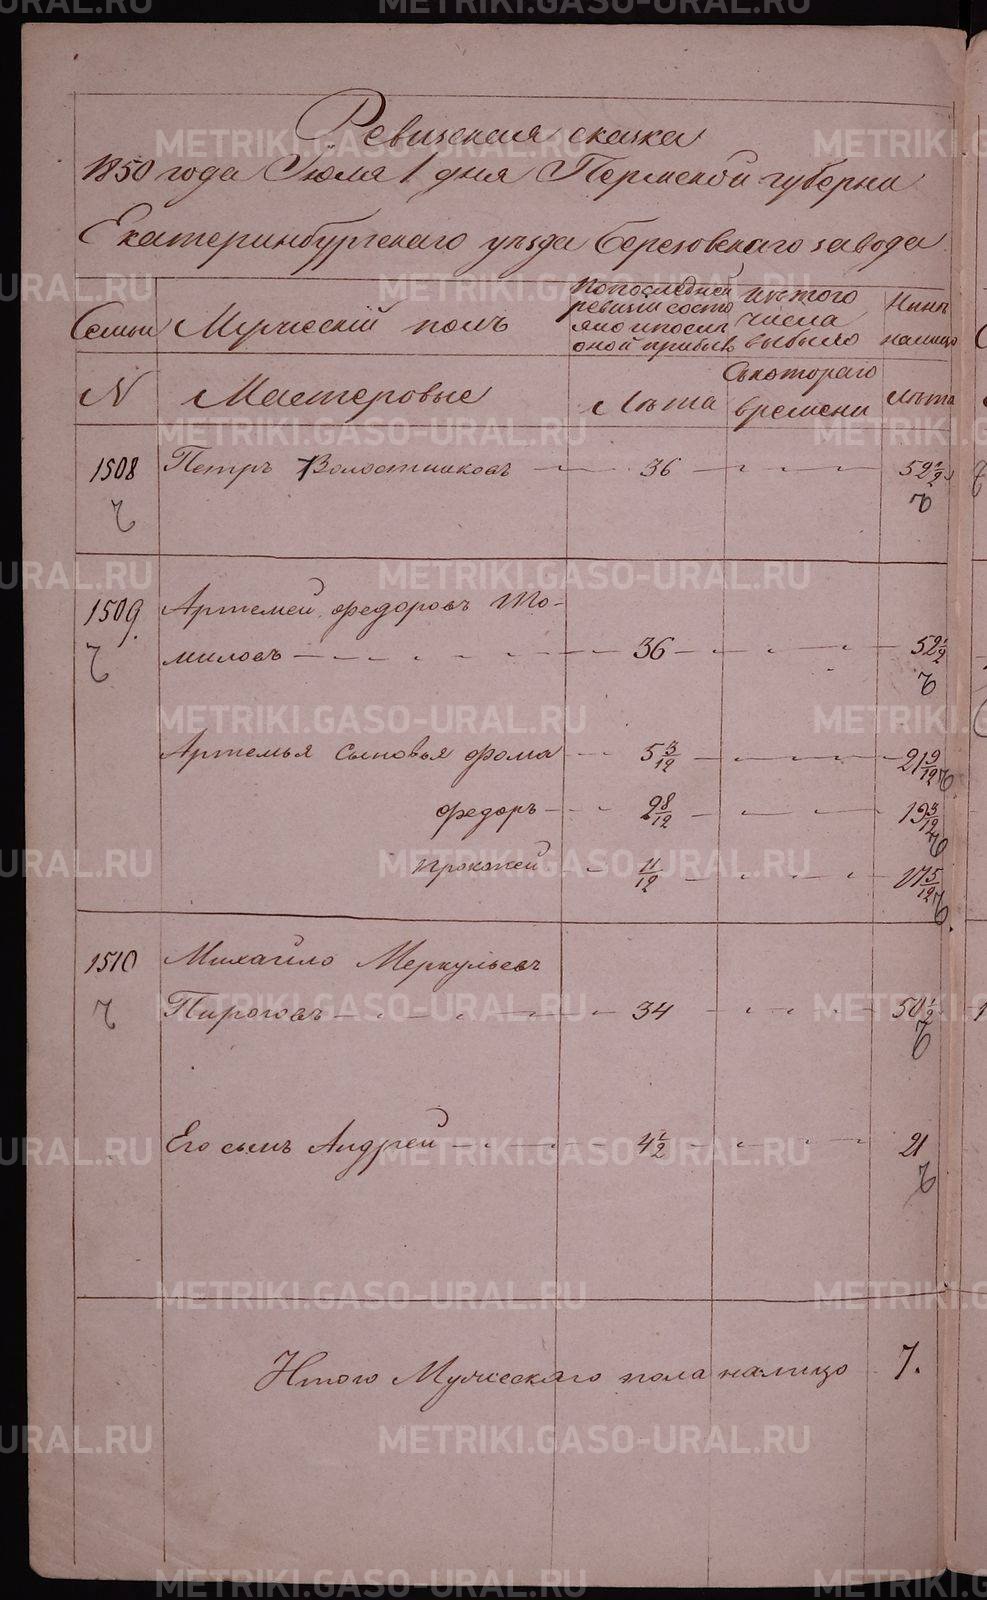 Ревизская сказка
1850 года Июля 1 дня Пермской губерни
Екатеринбургскаго уѣзда Березовскаго завода
Семьи
Мужескій полъ
По последней
ревизіи состо
яло и после
оной прибыло
Изъ того
числа
выбыло
Нынѣ
налицо
N
Мастеровые
Лѣта
Съ котораго
времени
Лѣта
1508 Петръ Волостниковъ 36 52 1/2
1509. Артемей Федоровъ То-
миловъ 36 52 1/2
Артемья сыновья Фома 5 3/12 21 9/12
Федоръ 2 8/12 19 3/12
Прокопей 11/12 17 5/12
1510 Михайло Меркульевъ
Пироговъ 34 50 1/2
Его сынъ Андрей 4 1/2 21
Итого Мужескаго пола налицо 7.
METRIKI.GASO-URAL.RU